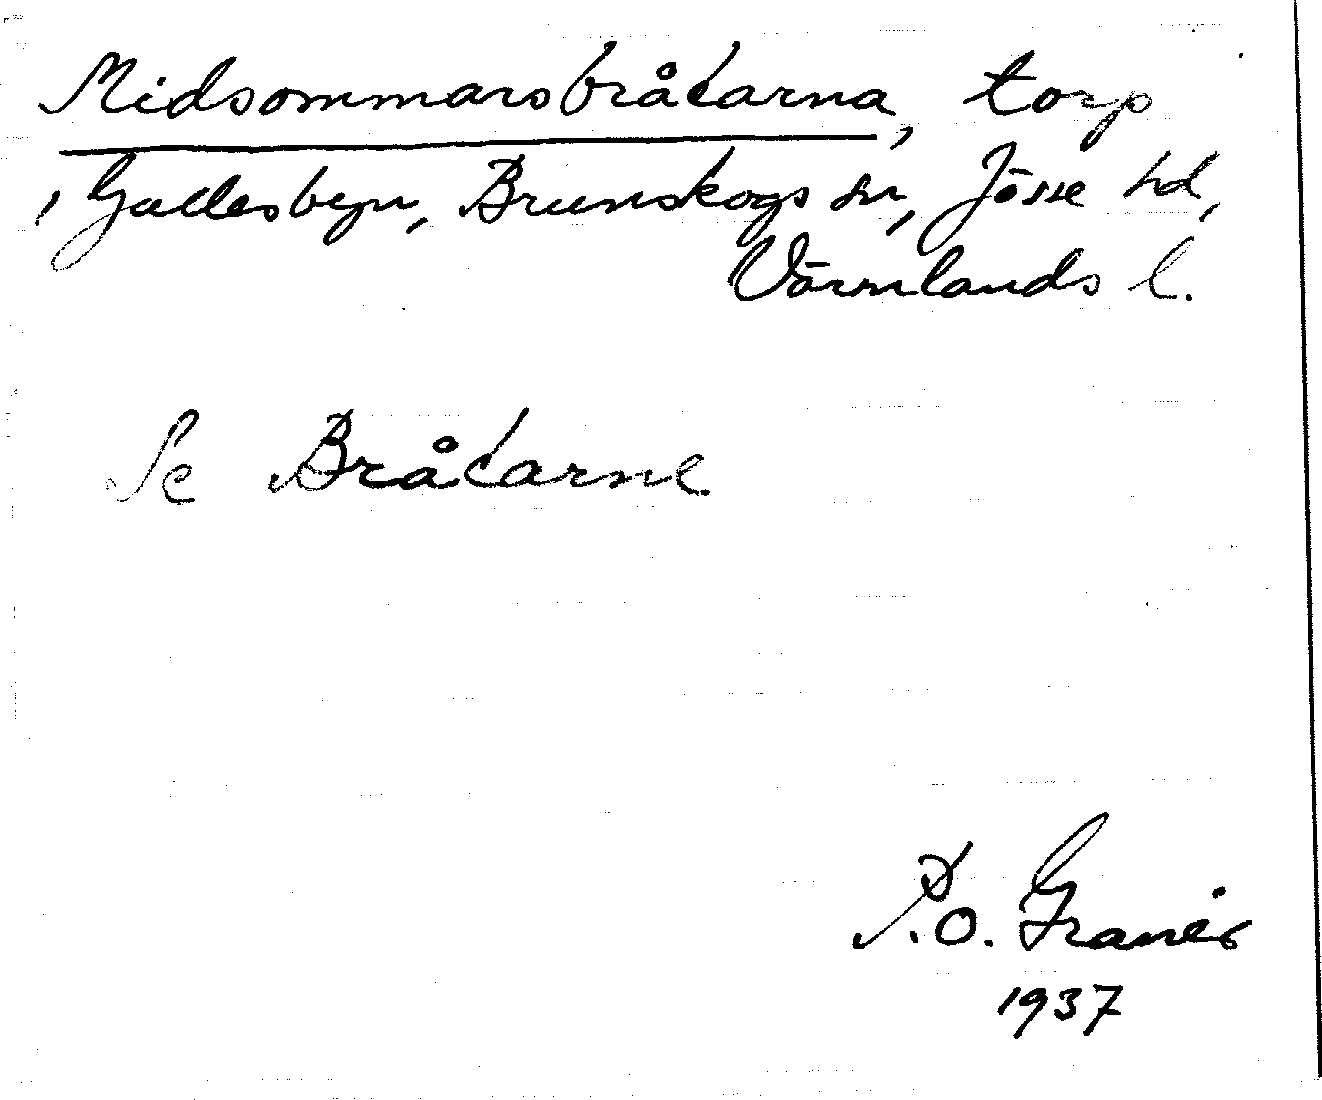 Midsommarsbråtarna, torp
, Gallesbyn, Brunskogs sn, Jösse hd,
Värmlands l.
Se Bråtarne
P.O. Granér
1937